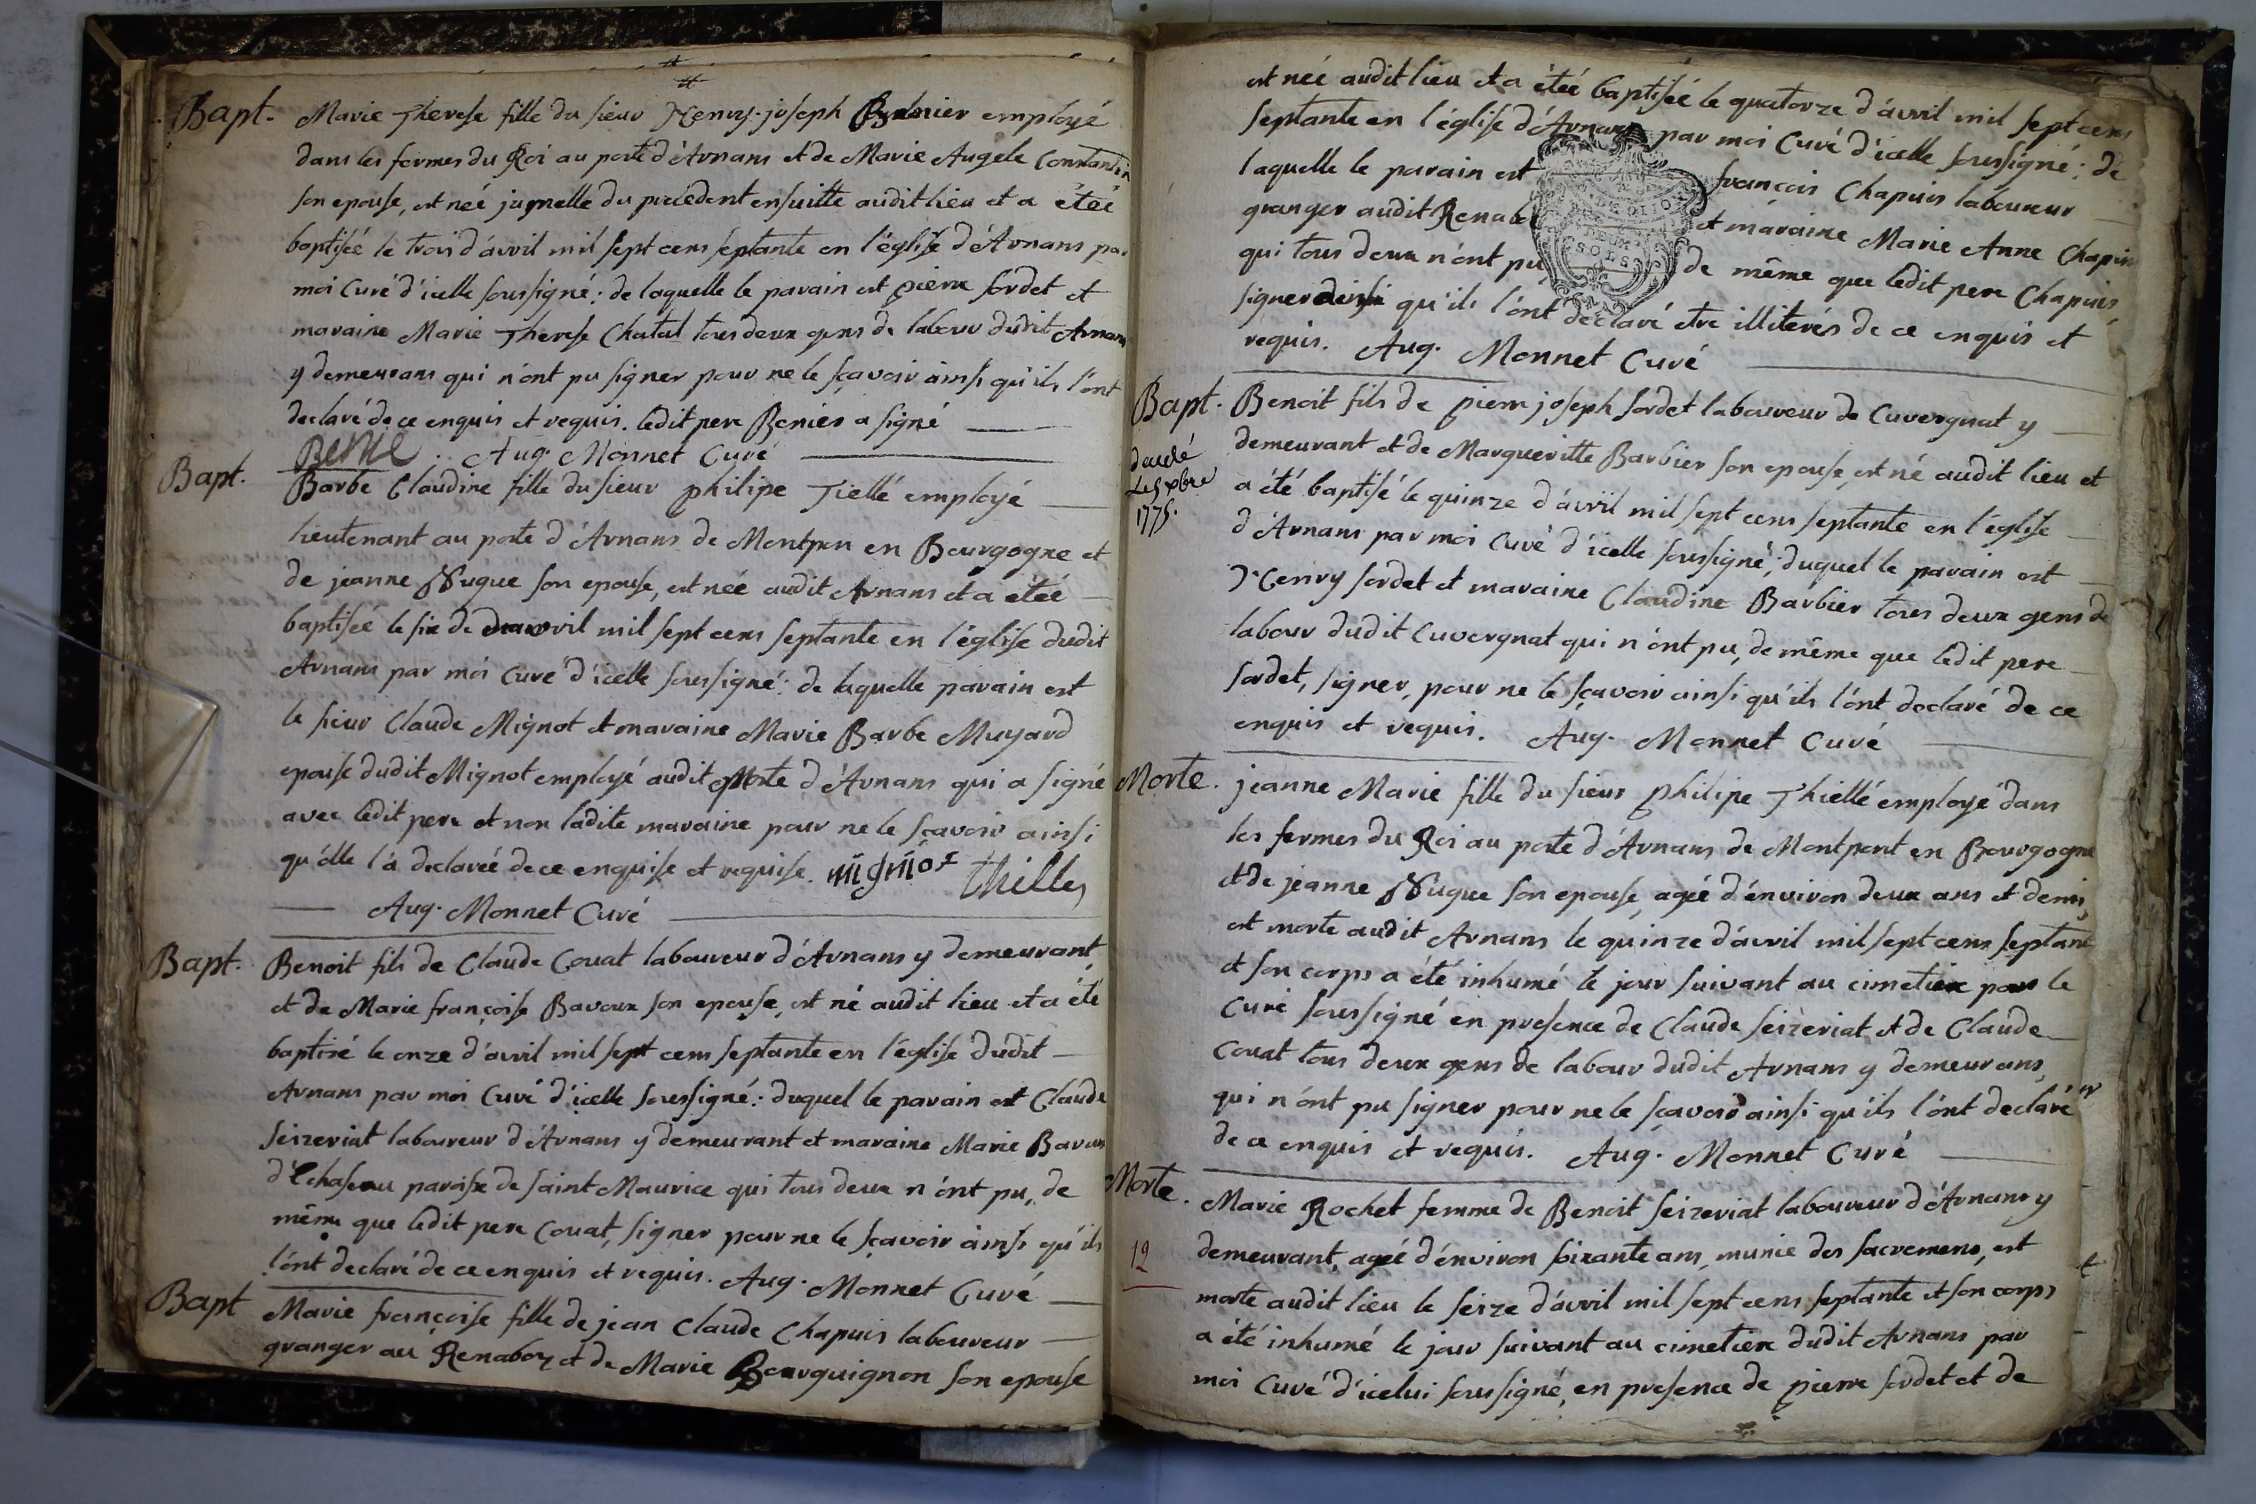 Bapt. Marie Therese fille du sieur Henry-joseph Bernier employé
dans les fermes du Roi au poste d'Arnans et de Marie Angele Constantin
son epouse, est née jumelle du precedent ensuitte audit lieu et a étée
baptisée le trois d'avril mil sept cens septante en l'église d'Arnans par
moi Curé d'icelle soussigné: de laquelle le parain est pierre sordet et
maraine Marie Therese Chatal tous deux gens de labour dudit Arnans
y demeurans qui n'ont pu signer pour ne le sçavoir ainsi qu'ils l'ont
declaré de ce enquis et requis. ledit pere Benier a signé
Aug. Monnet Curé
Bapt. Barbe Claudine fille du sieur philipe Tiellé employé
lieutenant au poste d'Arnans de Montpon en Bourgogne et
de jeanne Nugue son epouse, est née audit Arnans et a étée
baptisée le six de avril mil sept cens septante en l'église dudit
Arnans par moi Curé d'icelle soussigné: de laquelle parain est
le sieur Claude Mignot et maraine Marie Barbe Muyard
epouse dudit Mignot employé audit Poste d'Arnans qui a signé
avec ledit pere et non ladite maraine pour ne le sçavoir ainsi
qu'elle l'a declarée de ce enquise et requise. mignot thilles
Aug. Monnet Curé
Bapt. Benoit fils de Claude Couat laboureur d'Arnans y demeurant
et de Marie françoise Bavoux son epouse, est né audit lieu et a été
baptisé le onze d'avril mil sept cens septante en l'église dudit
Arnans par moi Curé d'icelle soussigné: duquel le parain est Claude
seizeriat laboureur d'Arnans y demeurant et maraine Marie Bavoux
d'Echaseau paroisse de saint Maurice qui tous deux n'ont pu, de
même que ledit pere Couat, signer pour ne le sçavoir ainsi qu'ils
l'ont declaré de ce enquis et requis. Aug. Monnet Curé
Bapt Marie françoise fille de jean Claude Chapuis laboureur
granger au Renaboz et de Marie Bourguignon son epouse
est née audit lieu et a étée baptisée le quatorze d'avril mil sept cens
septante en l'église d'Arnans par moi Curé d'icelle soussigné: de
laquelle le parain est françois Chapuis laboureur
granger audit Renaboz et maraine Marie Anne Chapuis
qui tous deux n'ont pu de même que ledit pere Chapuis,
signer ainsi qu'ils l'ont declaré etre illiterés de ce enquis et
requis. Aug. Monnet Curé
DEUX
SOLS
Bapt. Benoit fils de pierre joseph sordet laboureur de Cuvergnat y
decedé
Le 5 xbre
1775.
demeurant et de Margueritte Barbier son epouse, est né audit lieu et
a été baptisé le quinze d'avril mil sept cens septante en l'église
d'Arnans par moi Curé d'icelle soussigné; duquel le parain est
Henry sordet et maraine Claudine Barbier tous deux gens de
labour dudit Cuvergnat qui n'ont pu, de même que ledit pere
sordet, signer, pour ne le sçavoir ainsi qu'ils l'ont declaré de ce
enquis et requis. Aug. Monnet Curé
Morte. jeanne Marie fille du sieur philipe Thiellé employé dans
les fermes du Roi au poste d'Arnans de Montpont en Bourgogne
et de jeanne Nugue son epouse, agée d'environ deux ans et demi,
est morte audit Arnans le quinze d'avril mil sept cens septante
et son corps a été inhumé le jour suivant au cimetiere par le
Curé soussigné en presence de Claude seizeriat et de Claude
Couat tous deux gens de labour dudit Arnans y demeurans,
qui n'ont pu signer pour ne le sçavoir ainsi qu'ils l'ont declaré
de ce enquis et requis. Aug. Monnet Curé
Morte. Marie Rochet femme de Benoit seizeriat laboureur d'Arnans y
12
demeurant, agée d'environ soixante ans, munie des sacremens, est
morte audit lieu le seize d'avril mil sept cens septante et son corps
a été inhumé le jour suivant au cimetiere dudit Arnans par
moi Curé d'icelui soussigné, en presence de pierre sordet et de